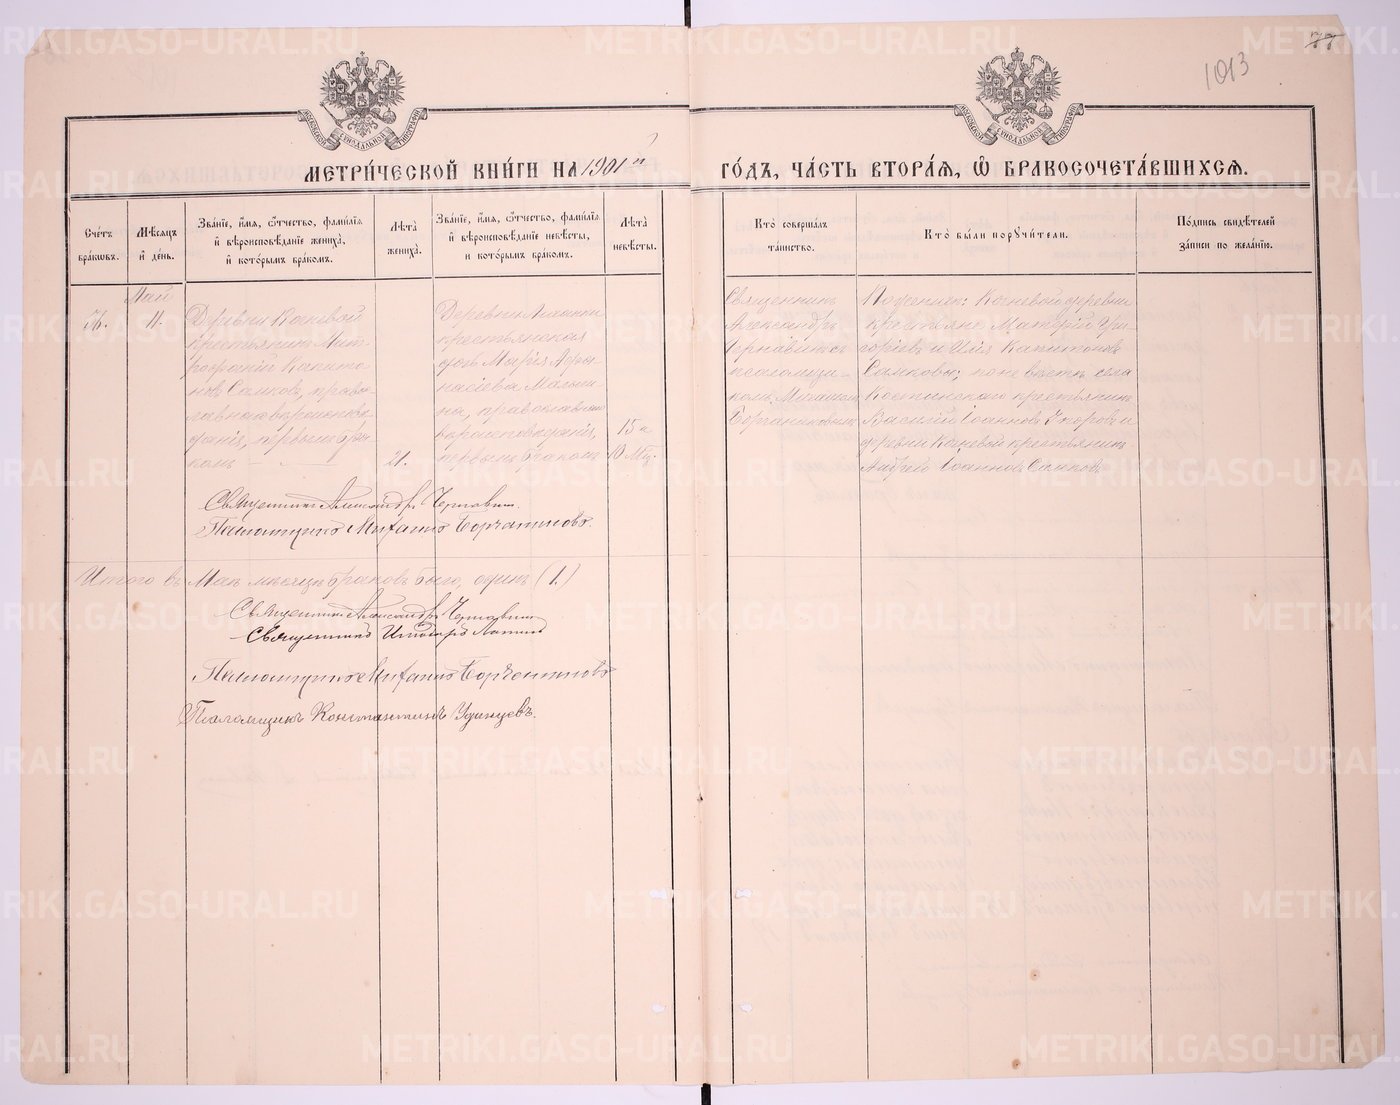 1013
77
МЕТРИ́ЧЕСКОЙ КНИ́ГИ НА 1901й
ГО́ДЪ, ЧА́СТЬ ВТОРА́Я, Ѿ БРАКОСОЧЕТА́ВШИХСЯ.
Сче́тъ бра́кѡвъ.
Мѣ́сяцъ й де́нь.
Зва́нїе, и҆́мя, ѻ҆́тчество, фамѝлїѧ й вѣроисповѣ́данїе жениха̀, й кото́рымъ бра́комъ.
Лѣ́та жениха̀.
Зва́нїе, и҆́мя, ѻ҆́тчество, фамѝлїѧ й вѣроисповѣ́данїе невѣ́сты, и кото́рымъ бра́комъ.
Лѣ́та невѣ́сты.
Кто̀ соверша́лъ та́инство.
Кто̀ бы́ли поручи́тели.
По́дпись свидѣ́телей за́писи по жела́нїю.
36.
Май
11.
Деревни Кочевой
крестьянинъ Мит-
рофаній Капито-
новъ Самковъ, право-
славнаго вѣроисповѣ-
данія, первымъ бра-
комъ
21.
Деревни
крестьянская
дочь Марія Афа-
насіева
на, православнаго
вѣроисповѣданія,
первымъ бракомъ
15 и
Священникъ
Александръ
Чернавинъ съ
псаломщи-
комъ Михаиломъ
По женихѣ: Кочневой деревни
крестьяне Матѳій Гри-
горіевъ и Илія Капитоновъ
Самковы; по невѣстѣ: села
Костинскаго крестьянинъ
Василій Іоанновъ и
деревни Кочневой крестьянинъ
Андрей Іоанновъ Самковъ
Священникъ Александръ Чернавинъ.
Псаломщикъ Михаилъ
Итого въ Маѣ мѣсяцѣ браковъ было, одинъ (1.)
Священникъ Александръ Чернавинъ
Священникъ
Псаломщикъ Михаилъ
Псаломщикъ Константинъ Удинцевъ.
METRIKI.GASO-URAL.RU